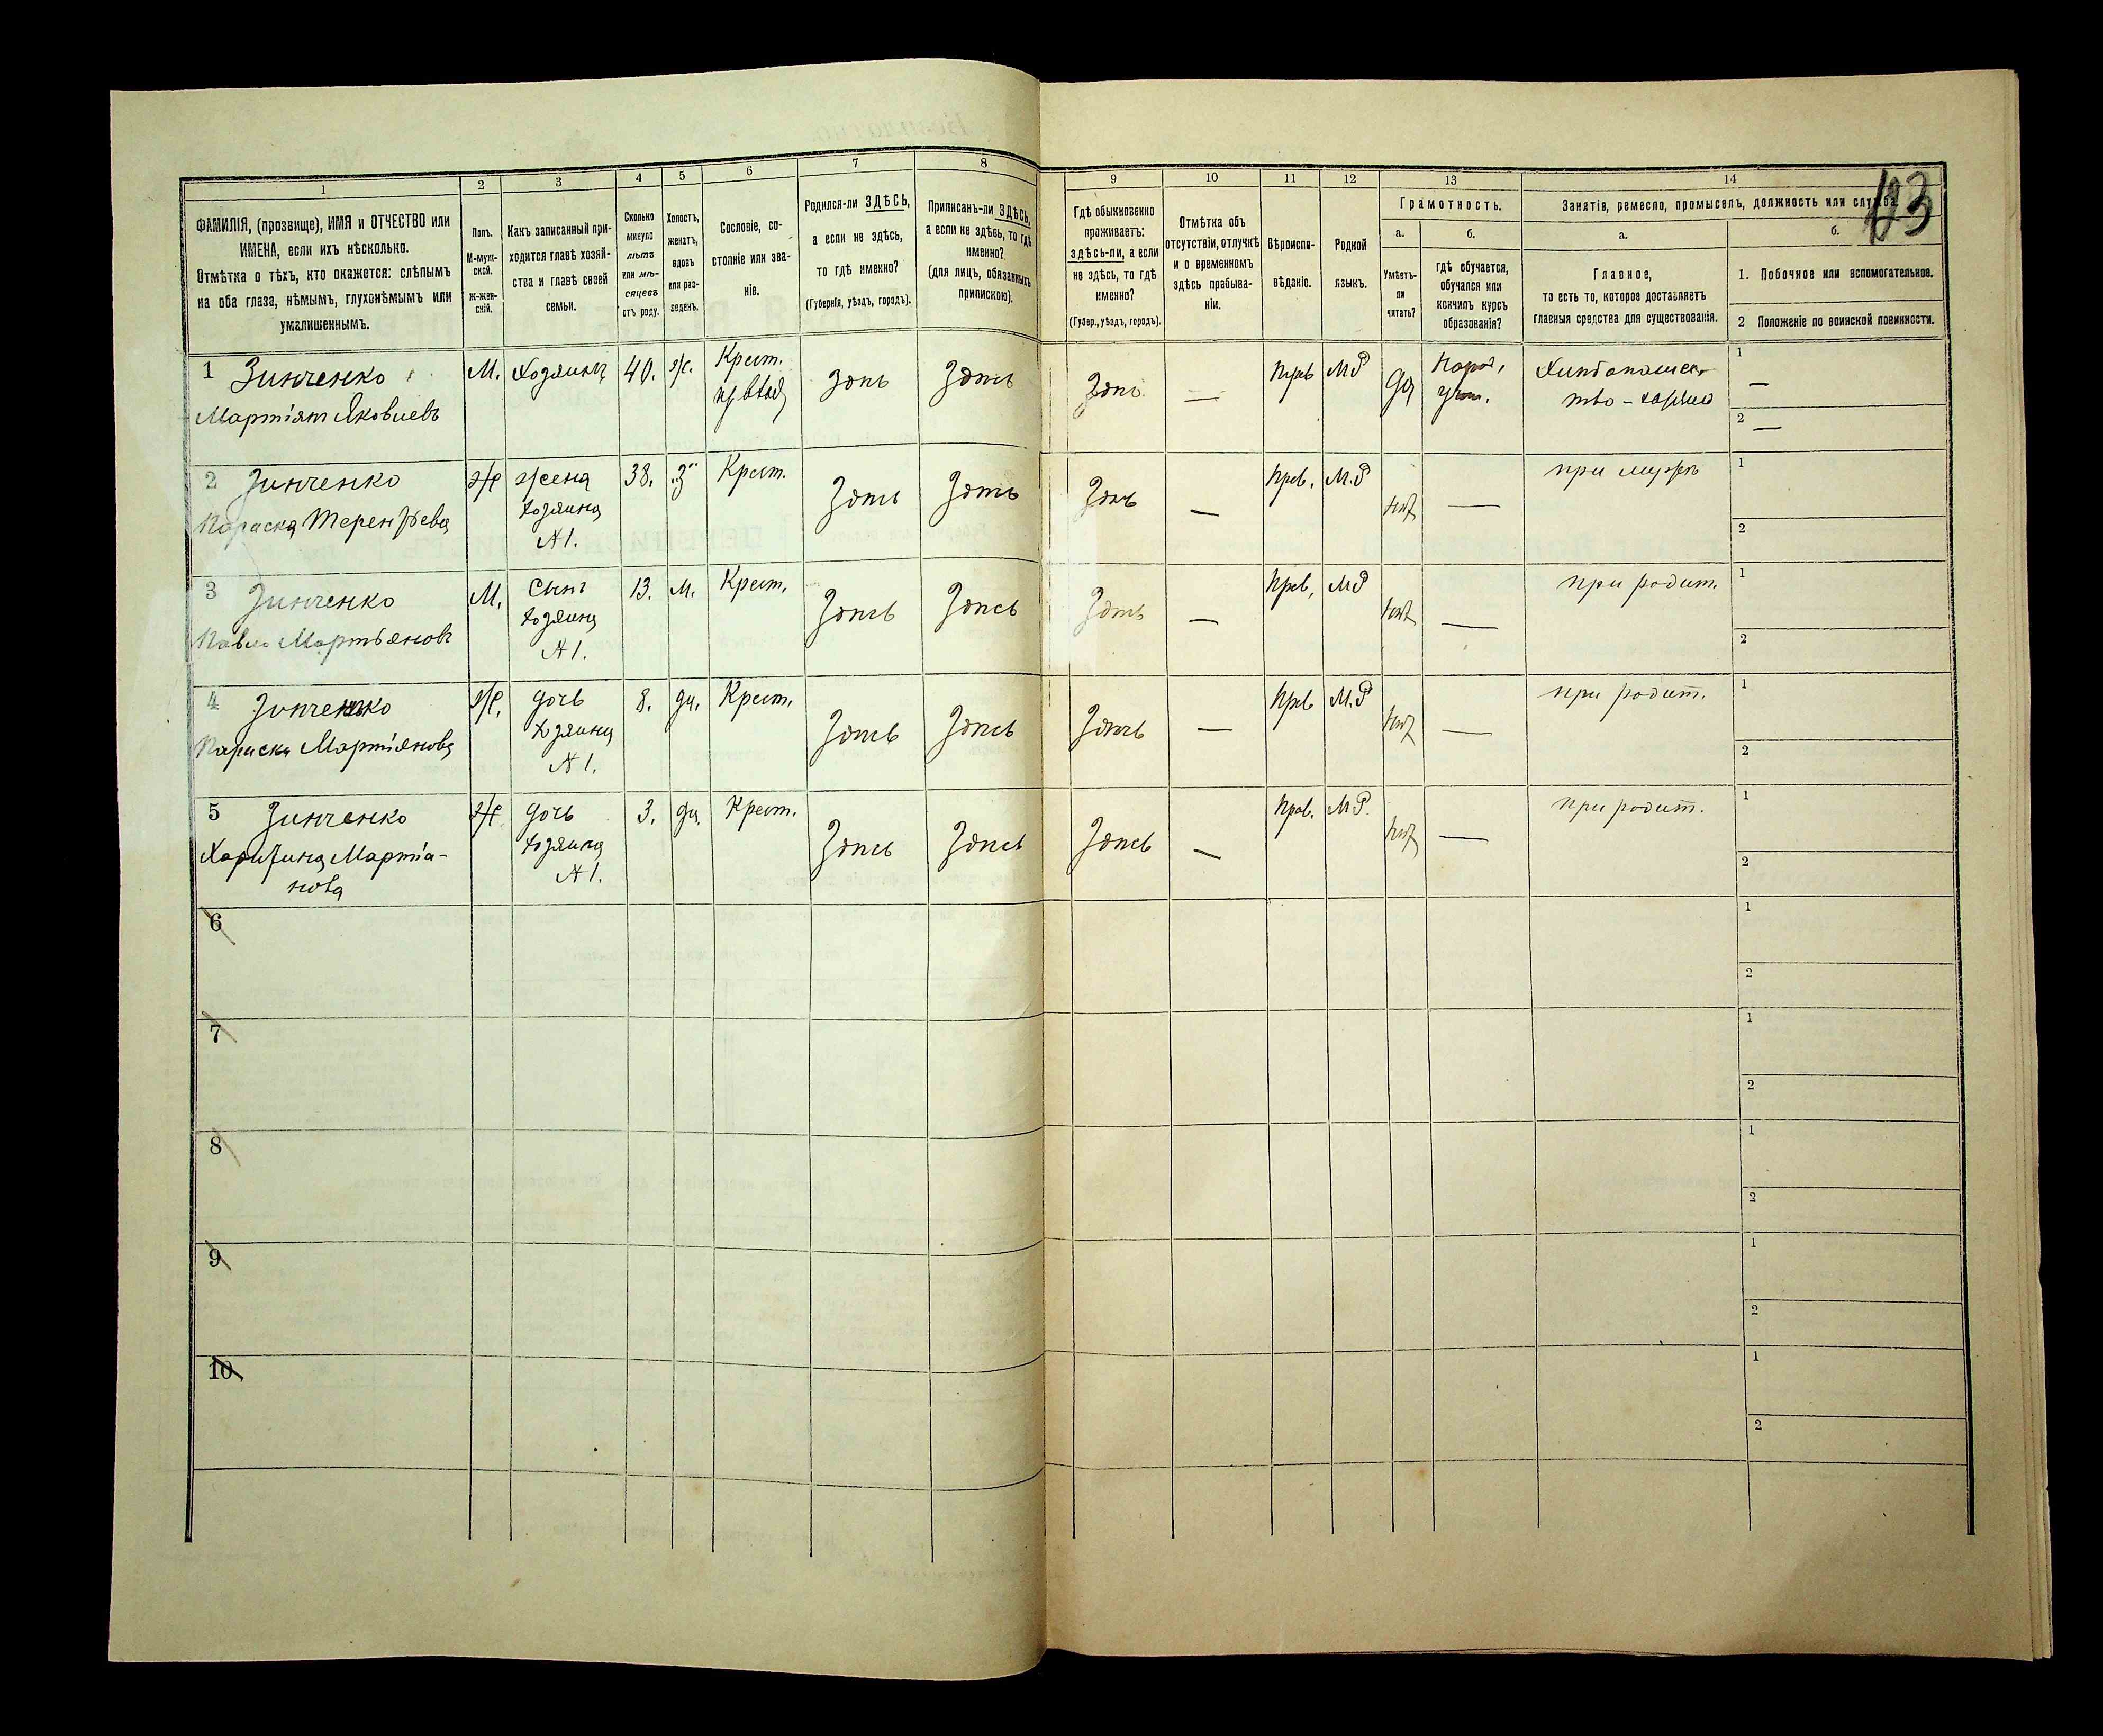 1 2 3 4 5 6 7 8 9 10 11 12 13 14
103
ФАМИЛІЯ, (прозвище), ИМЯ и ОТЧЕСТВО или
ИМЕНА, если ихъ нѣсколько.
Отмѣтка о тѣхъ, кто окажется: слѣпымъ
на оба глаза, нѣмымъ, глухонѣмымъ или
умалишеннымъ.
Полъ.
М-муж-
ской.
Ж-жен-
скій.
Какъ записанный при-
ходится главѣ хозяй-
ства и главѣ своей
семьи.
Сколько
минуло
лѣтъ
или мѣ-
сяцевъ
отъ роду.
Холостъ,
женатъ,
вдовъ
или раз-
веденъ.
Сословіе, со-
стояніе или зва-
ніе.
Родился-ли ЗДѢСЬ,
а если не здѣсь,
то гдѣ именно?
(Губернія, уѣздъ, городъ).
Приписанъ-ли ЗДѢСЬ,
а если не здѣсь, то гдѣ
именно?
(для лицъ, обязанныхъ
припискою).
Гдѣ обыкновенно
проживаетъ:
здѣсь-ли, а если
не здѣсь, то гдѣ
именно?
(Губер., уѣздъ, городъ).
Отмѣтка объ
отсутствіи, отлучкѣ
и о временномъ
здѣсь пребыва-
ніи.
Вѣроиспо-
вѣданіе.
Родной
языкъ.
Грамотность.
а.
Умѣетъ-
ли
читать?
б.
гдѣ обучается,
обучался или
кончилъ курсъ
образованія?
Занятія, ремесло, промыселъ, должность или служба.
а.
Главное,
то есть то, которое доставляетъ
главныя средства для существованія.
б.
1. Побочное или вспомогательное.
2 Положеніе по воинской повинности.
1 Зинченко М. Хозяинъ 40. ж. Крест. Здѣсь Здѣсь Здѣсь — Прав М.Р да Народ. Хлѣбопашес- 1 —
Мартіян Яковлевъ учил. тво – 2 —
2 Зинченко Ж жена 38. З. Крест. Здѣсь Здѣсь Здѣсь — Прав. М.Р нѣт — при мужѣ 1
Параска Терентьева хозяина 2
№ 1.
3 Зинченко М. Сынъ 13. м. Крест. Здѣсь Здѣсь Здѣсь — Прав. М.Р нѣт — при родит. 1
Павло Мартьяновъ хозяина 2
№ 1.
4 Зинченко Ж. дочь 8. дѣ. Крест. Здѣсь Здѣсь Здѣсь — Прав М.Р нѣт — при родит. 1
Параска Мартіянова хозяина 2
№ 1.
5 Зинченко Ж дочь 3. дѣ. Крест. Здѣсь Здѣсь Здѣсь — Прав. М.Р. нѣт — при родит. 1
Харитина Мартіа- хозяина 2
нова № 1.
6 1
2
7 1
2
8 1
2
9 1
2
10 1
2